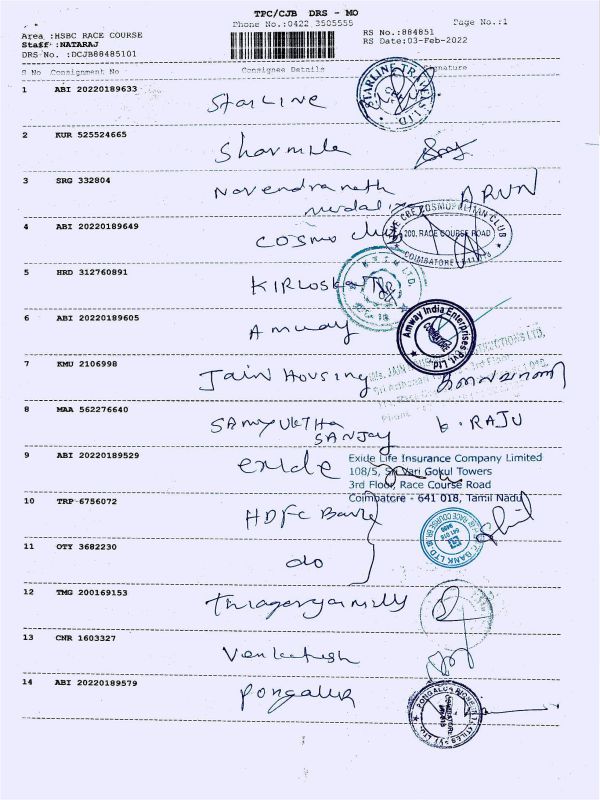 TPC/CJB DRS - MO
Phone No.:0422 3505555 Page No.:1
Area :HSBC RACE COURSE
Staff :NATARAJ
DRS-No. :DCJB88485101
RS No.:884851
RS Date:03-Feb-2022
S No Consignment No Consignee Details Signature
1 ABI 20220189633 Starline
STARLINE TRAVELS LTD
2 KUR 525524665 Sharmila
3 SRG 332804 Navendranath
mudaliar ARUN
4 ABI 20220189649 COSMO club
THE CBE COSMOPOLITAN CLUB
200, RACE COURSE ROAD
COIMBATORE
5 HRD 312760891 KIRLOSKAR
6 ABI 20220189605 Amway
Amway India Enterprises Pvt. Ltd
7 KMU 2106998 Jain Housing
8 MAA 562276640 SAMYUKTHA
SANJAY b. RAJU
9 ABI 20220189529 exide
Exide Life Insurance Company Limited
108/5, Sri Vari Gokul Towers
3rd Floor, Race Course Road
Coimbatore - 641 018, Tamil Nadu
10 TRP 6756072 HDFC Bank
11 OTY 3682230 do
12 TMG 200169153 Thiagarajamills
13 CNR 1603327 Venkatesh
14 ABI 20220189579 Pongalur